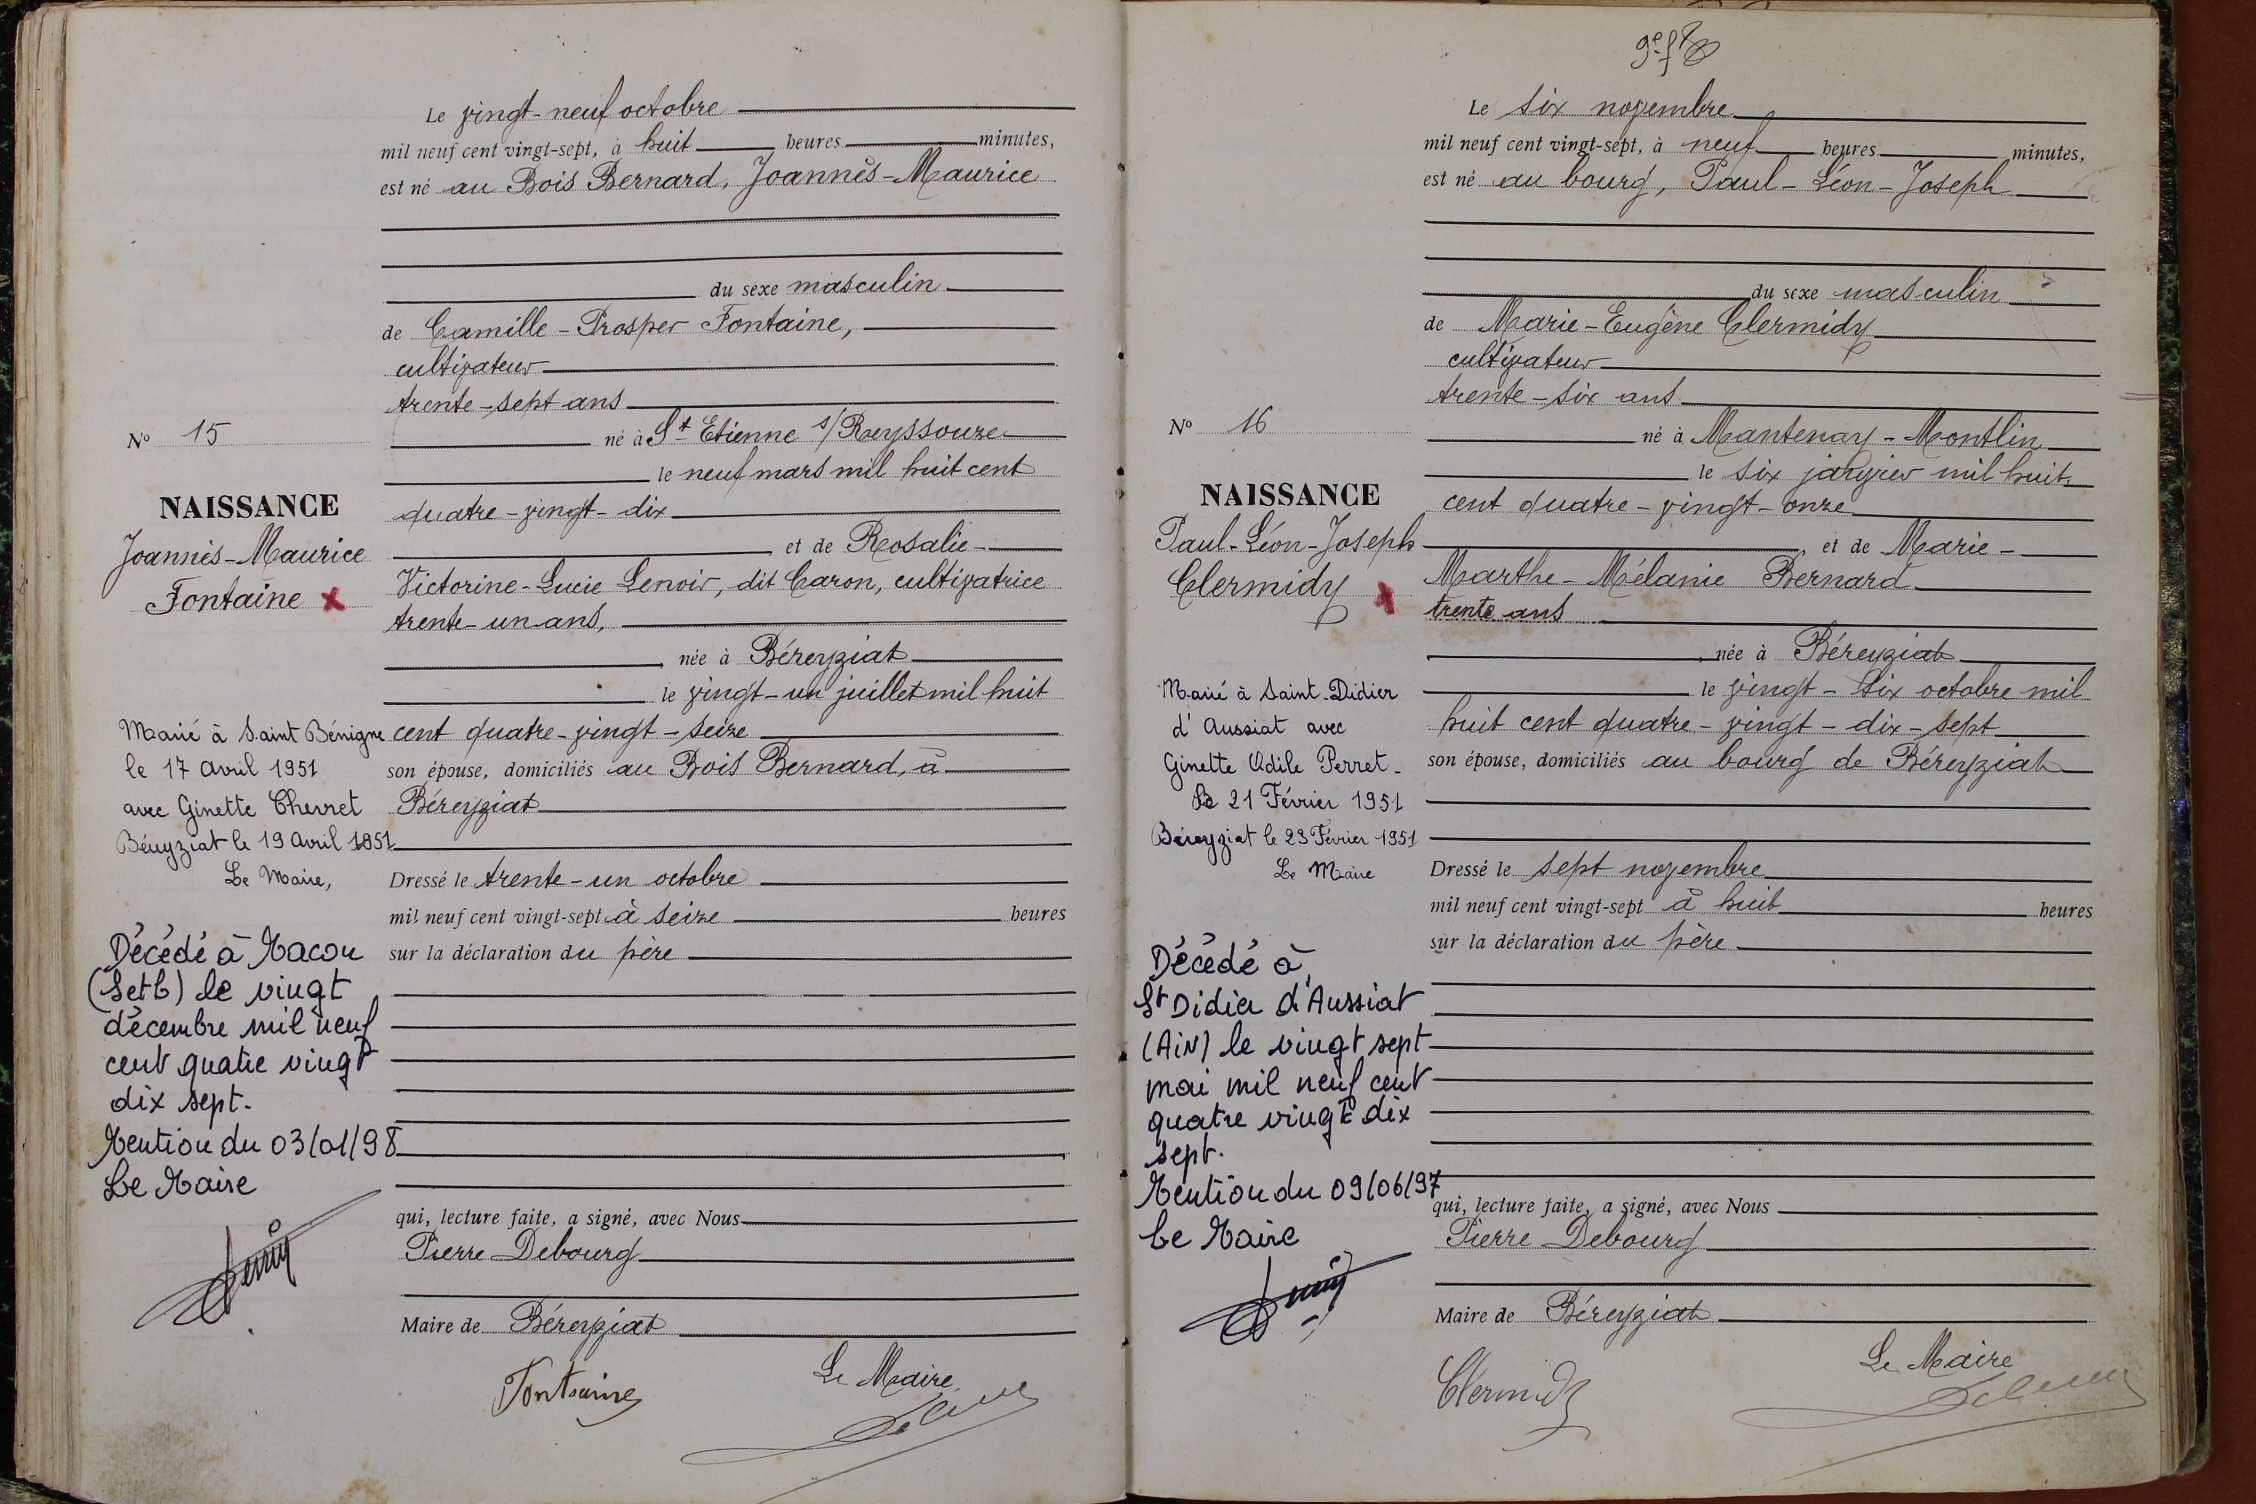 Le vingt-neuf octobre
mil neuf cent vingt-sept, à huit heures minutes,
est né au Bois Bernard, Joannès-Maurice
du sexe masculin
de Camille-Prosper Fontaine,
cultivateur
trente-sept ans
né à St Etienne s/Reyssouze
le neuf mars mil huit cent
quatre-vingt-dix
et de Rosalie-
Victorine-Lucie Lenoir, dit Caron, cultivatrice
trente-un ans,
née à Béreyziat
le vingt-un juillet mil huit
cent quatre-vingt-seize
son épouse, domiciliés au Bois Bernard, à
Béreyziat
Dressé le trente-un octobre
mil neuf cent vingt-sept à seize heures
sur la déclaration du père
qui, lecture faite, a signé, avec Nous
Pierre Debourg
Maire de Béreyziat
Le Maire
Fontaine
No 15
NAISSANCE
Joannès-Maurice
Fontaine x
Marié à Saint Bénigne
le 17 Avril 1951
avec Ginette Chevret
Béreyziat le 19 Avril 1951
Le Maire,
Décédé à Macon
(SetL) le vingt
décembre mil neuf
cent quatre vingt
dix sept.
Mention du 03/01/98
Le Maire
Le six novembre
mil neuf cent vingt-sept, à neuf heures minutes,
est né au bourg, Paul-Léon-Joseph
du sexe masculin
de Marie-Eugène Clermidy
cultivateur
trente-six ans
né à Mantenay-Montlin
le six janvier mil huit
cent quatre-vingt-onze
et de Marie-
Marthe-Mélanie Bernard
trente ans
née à Béreyziat
le vingt-six octobre mil
huit cent quatre-vingt-dix-sept
son épouse, domiciliés au bourg de Béreyziat
Dressé le sept novembre
mil neuf cent vingt-sept à huit heures
sur la déclaration du père
qui, lecture faite, a signé, avec Nous
Pierre Debourg
Maire de Béreyziat
Le Maire
Clermidy
No 16
NAISSANCE
Paul-Léon-Joseph
Clermidy x
Marié à Saint-Didier
d'Aussiat avec
Ginette Odile Perret-
Le 21 Février 1951
Béreyziat le 23 Février 1951
Le Maire
Décédé à
St Didier d'Aussiat
(AiN) le vingt sept
mai mil neuf cent
quatre vingt dix
sept.
Mention du 09/06/97
Le Maire